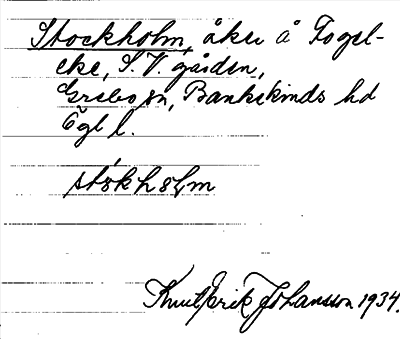 Stockholm, åker å Fogel-
eke, S. V. gården,
Grebo sn, Bankekinds hd
Ögl l.
stókhólm
Knut Erik Johansson 1934.